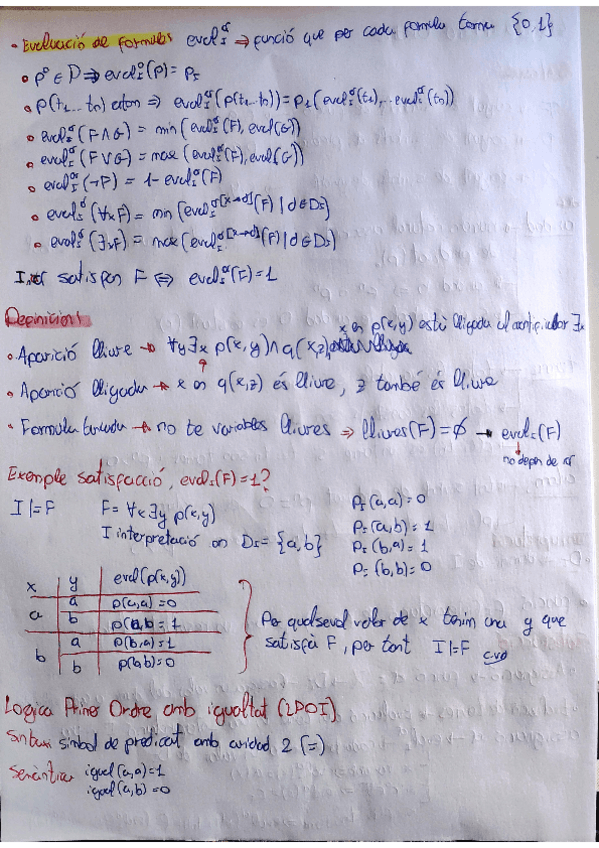 • Evaluació de formules eval_I^σ ⇒ funció que per cada formula torna {0,1}
• p⁰ ∈ P ⇒ eval_I^σ(p) = p_I
• p(t₁...tₙ) aton ⇒ eval_I^σ(p(t₁...tₙ)) = p_I(eval_I^σ(t₁),...eval_I^σ(tₙ))
• eval_I^σ(F∧G) = min(eval_I^σ(F), eval(G))
• eval_I^σ(F∨G) = max(eval_I^σ(F), eval(G))
• eval_I^σ(¬F) = 1 - eval_I^σ(F)
• eval_I^σ(∀xF) = min{eval_I^σ[x→d](F) | d∈D_I}
• eval_I^σ(∃xF) = max{eval_I^σ[x→d](F) | d∈D_I}
I,σ satisfan F ⇔ eval_I^σ(F)=1
Definicions
x en p(x,y) està lligada al quantificador ∃x
• Aparició lliure → ∀y∃x p(x,y)∧q(x,z)
• Aparició lligada → x en q(x,z) és lliure, z també és lliure
• Formula tancada → no te variables lliures ⇒ lliures(F)=∅ → eval_I(F)
no depen de σ
Exemple satisfacció, eval_I(F)=1?
I|=F F= ∀x∃y p(x,y)
I interpretació on D_I= {a,b}
P_I(a,a)=0
P_I(a,b)=1
P_I(b,a)=1
P_I(b,b)=0
x y eval(p(x,y))
a a p(a,a)=0
b p(a,b)=1
b a p(b,a)=1
b p(b,b)=0
Per qualsevol valor de x tenim una y que
satisfà F, per tant I|=F cvd
Logica Primer Ordre amb igualtat (LPOI)
Sintaxi simbol de predicat amb aridad 2 (=)
Semàntica igual(a,a)=1
igual(a,b)=0